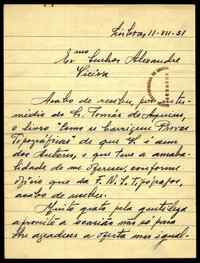 Lisboa, 11-VII-51
Exmo Senhor Alexandre
Vieira
Acabo de receber, por inter-
médio do C. Tomás de Aquino,
o livro "Como se Corrigem Provas
Tipográficas" de que V. é um
dos Autores, e que teve a amabi-
lidade de me oferecer, conforme
ofício que do F. N. S. Tipógrafos,
acabo de receber.
Muito grato pela gentileza
aproveito a ocasião não só para
lhe agradecer a oferta mas igual-